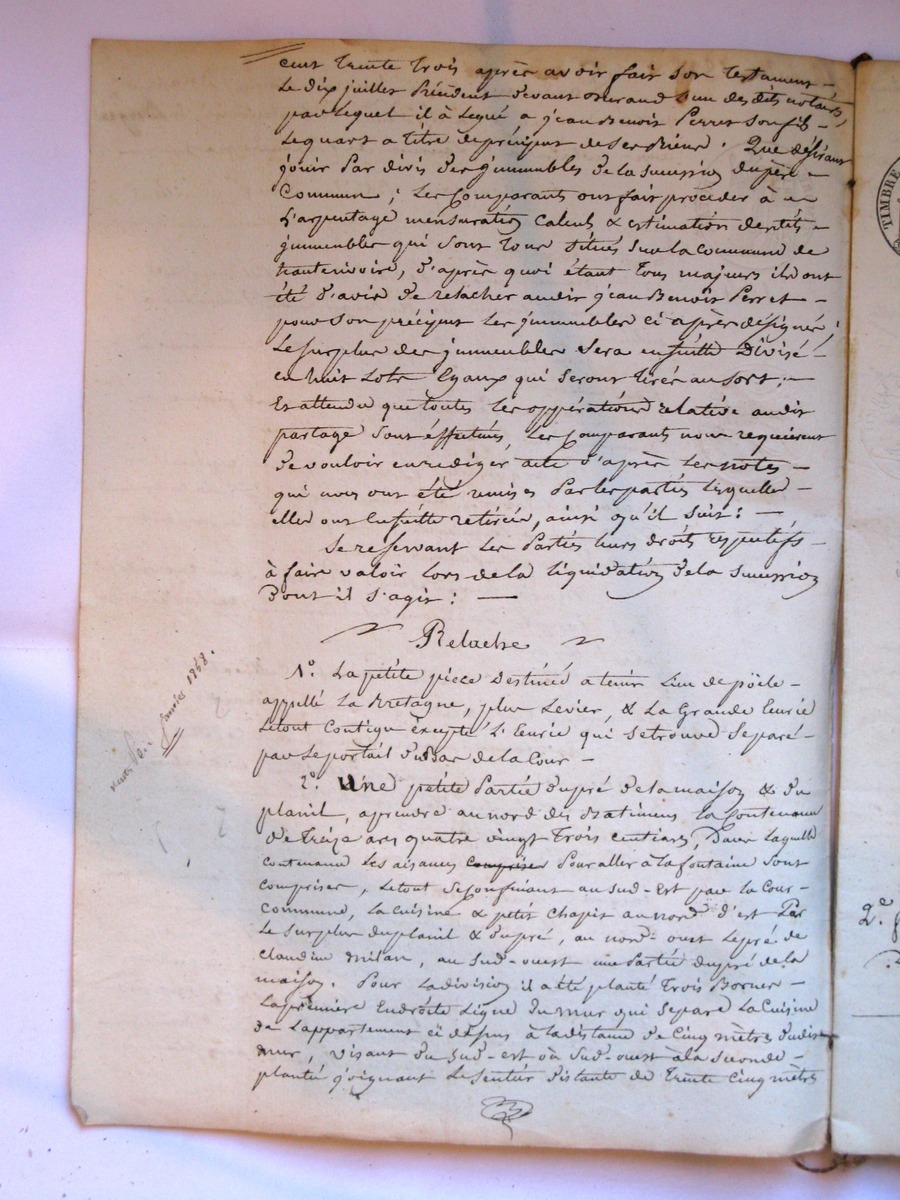 cent trente trois après avoir fait son testament -
Le dix juillet Précédent devant Durand l'un des dits notaires,
par lequel il à Legué a jean Benoit Perret son fils -
Le quart a titre de préciput de ses Biens. Que désirant
jouir Par divis des jmmeubles de la sucession du père -
Commun ; Les Comparants ont fait procéder à -
L'arpentage mensuration Calculs & estimation desdits -
jmmeubles qui sont tous situés sur la commune de
hauterivoire, d'après quoi étant tous majeurs ils ont
été d'avis de relacher audit jean Benoit Perret -
pour son préciput Les jmmeubles ci après désignés ;
Le surplus des jmmeubles sera ensuitte Divisé -
en huit Lots Egaux qui seront tirés au sort ; -
Et attendu que toutes les oppérations relative audit
partage sont éffectués, Les Comparants nous requièrent
de vouloir en rédiger acte d'après Les notes -
qui nous ont été remises Par les partiés lesquelles -
elles ont Ensuitte retirées, ainsi qu'il suit : -
Se reservant Les Parties leurs droits respectifs -
à faire valoir Lors de la liquidation de la sucession
Dont il s'agit : -
Relache
1°. La petite pièce Destineé a tenir Lieu de pöele -
appellé La Bretagne, plus Levier, & La Grande Eurie
Le tout Contigu éxcepté L'Eurie qui se trouve séparé -
par Le portail du Bas de la Cour -
janvier 1858.
2°. Une petite Partie du pré de la maison & du
planil, aprendre au nord des Batimens La Contenance
de treize ars quatre vingt trois centiares, Dans Laquelle
contenance Les aisances comprises Pour aller à la fontaine sont
comprises, Le tout se Confinant au sud-Est par la Cour -
Commune, La Cuisine & petit Chapit au nord d'est Par
Le surplus du planil & du pré, au nord-ouest Le pré de
claudine milan, au Sud-ouest une Partie du pré de la
maison. Pour La division il a été planté trois Bornes -
La première En droite Ligne du mur qui sépare La Cuisine
de L'appartement ci dessus à la distance de Cinq mètres dudit
mur, visant du sud-est où sud-ouest a la seconde -
plantée joignant Le sentier distante de trente Cinq mètres
TIMBRE
2.e